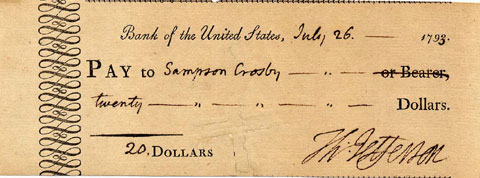 Bank of the United States, July 26 — 1793.
PAY to Sampson Crosby — „ — or Bearer,
twenty — „ — „ — „ — „ — Dollars.
20. DOLLARS
Th. Jefferson